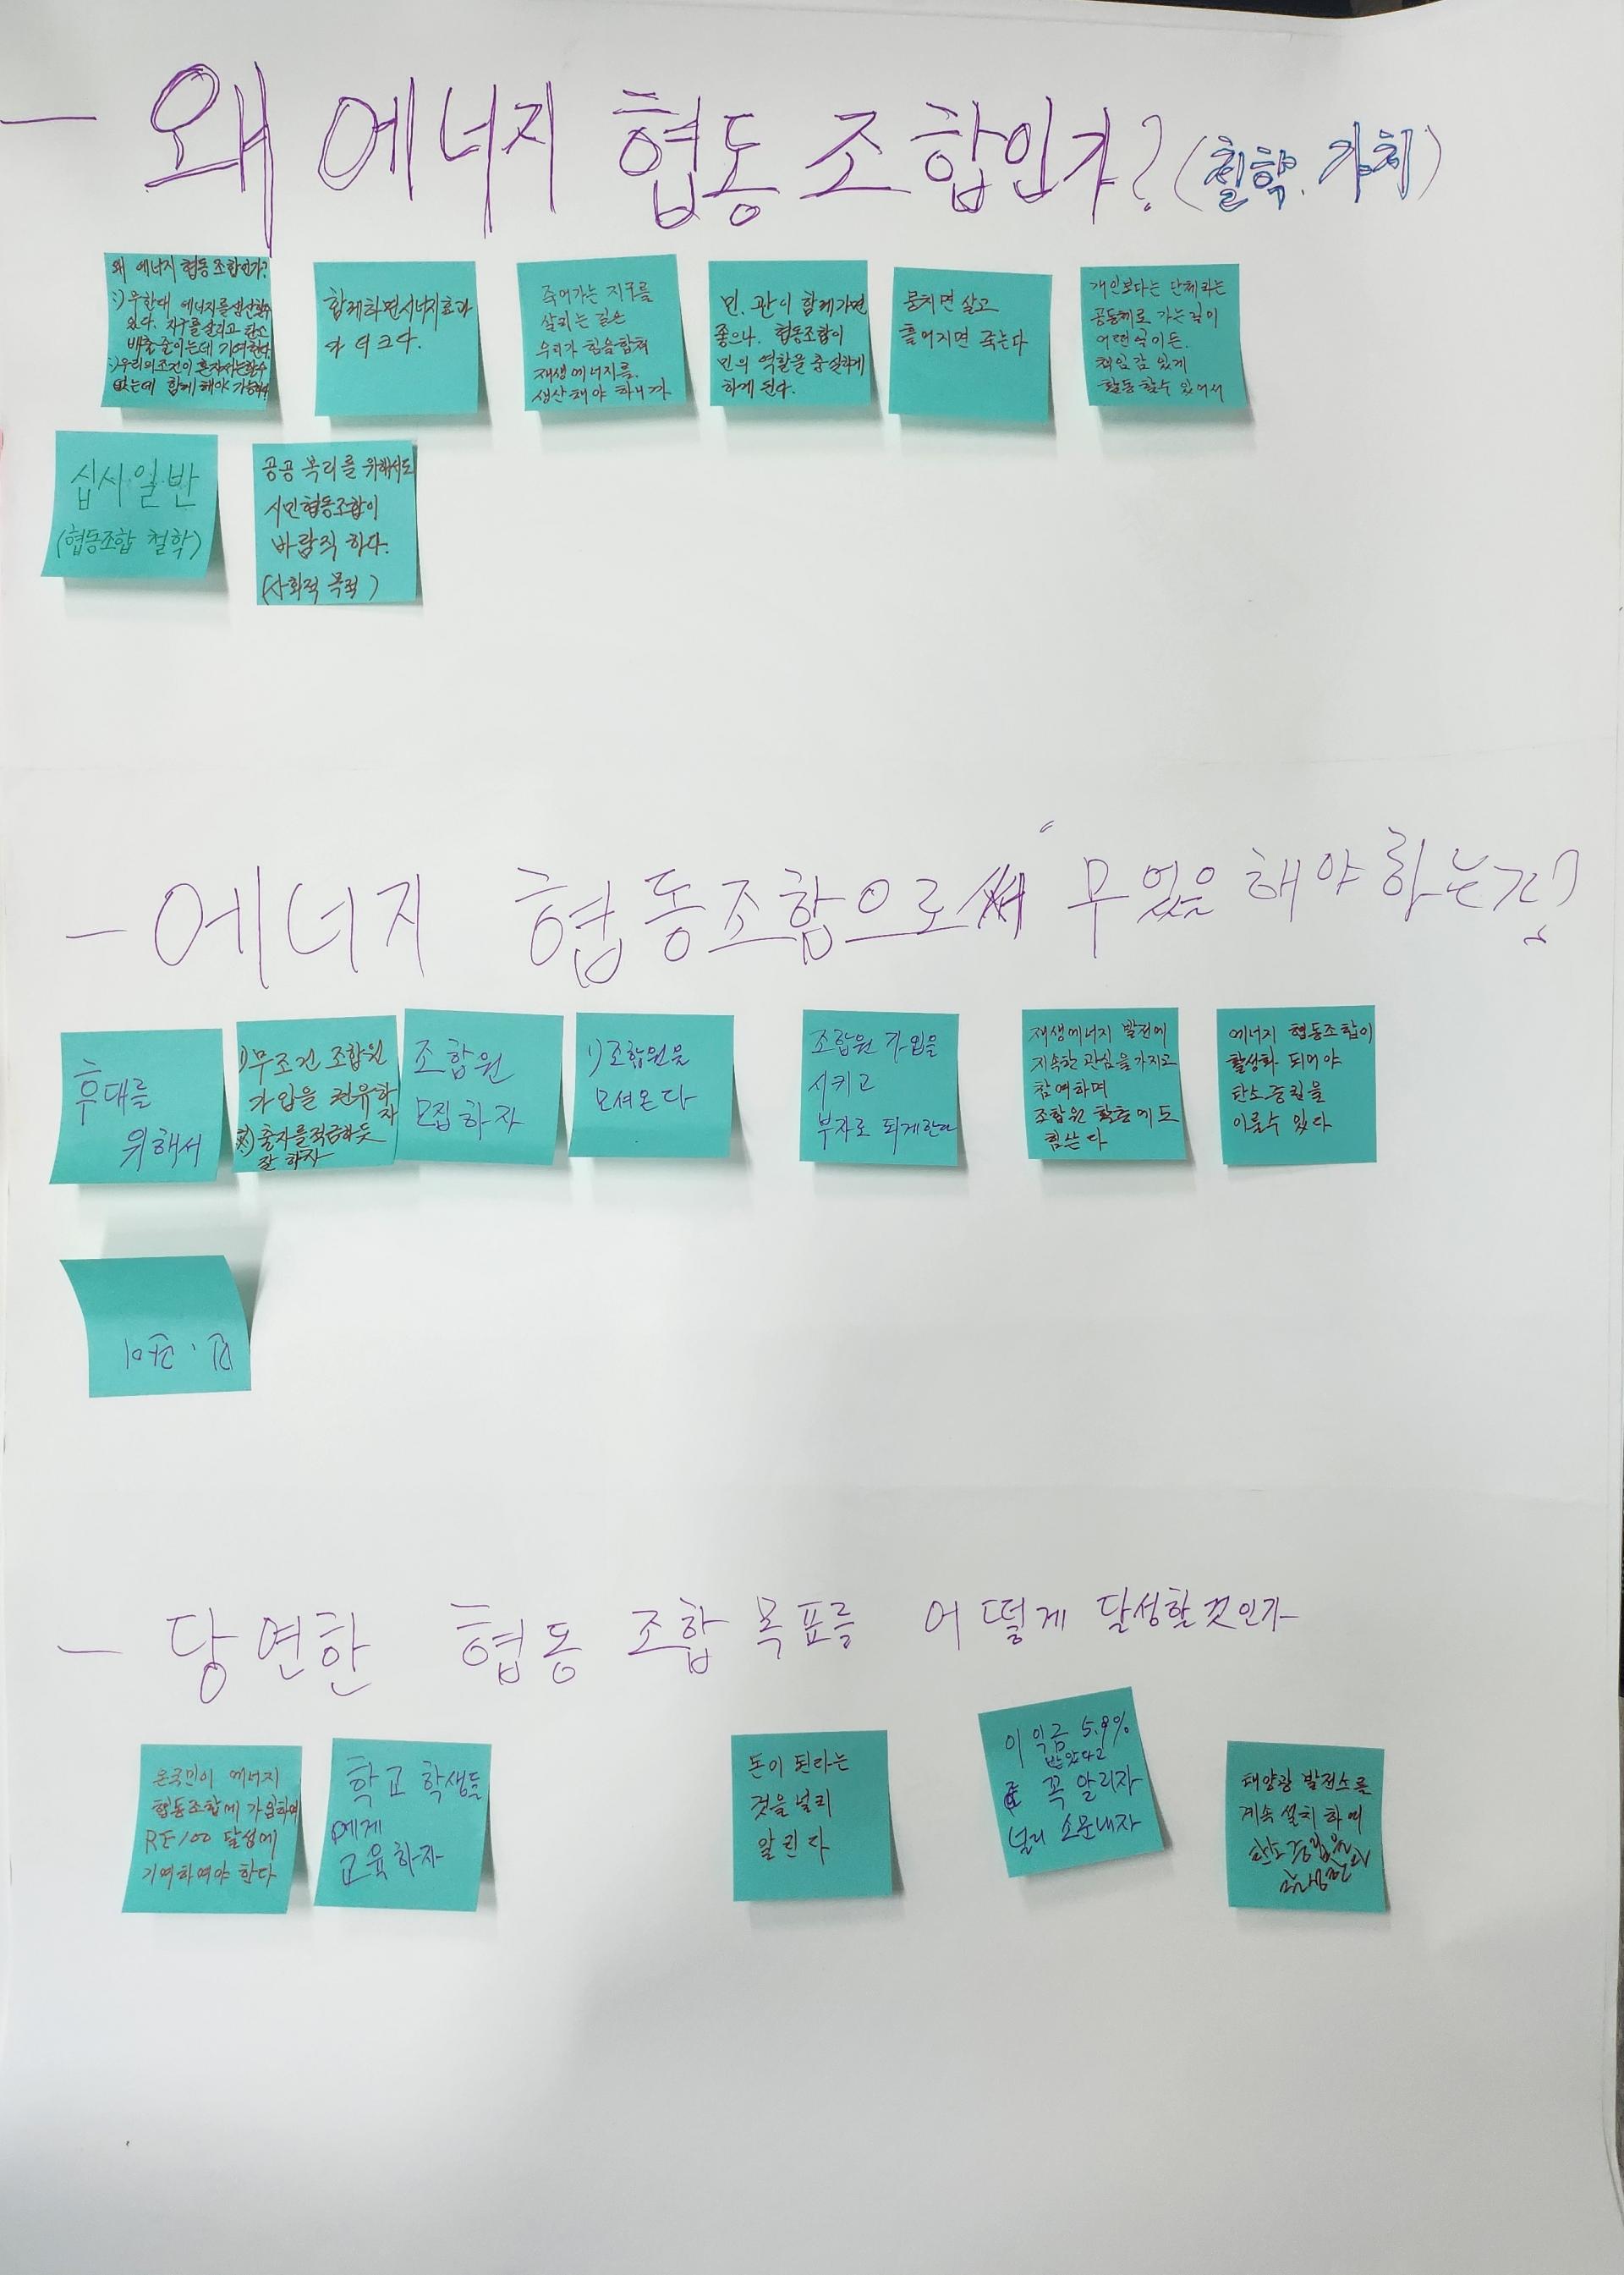 - 왜 에너지 협동조합인가? (철학. 가치)
왜 에너지 협동조합인가?
1) 무한대 에너지를 생산할수
있다. 지구를 살리고 탄소
배출 줄이는데 기여한다.
우리의 조건이 혼자서는할수
없는데 함께 해야 가능하다
함께하면 시너지효과
가 더 크다.
죽어가는 지구를
살리는 길은
우리가 힘을합쳐
재생에너지를.
생산해야 하니까
민. 관이 함께가면
좋으나. 협동조합이
민의 역할을 충실하게
하게 된다.
뭉치면 살고
흩어지면 죽는다
개인보다는 단체라는
공동체로 가는길이
어떤 일이든.
책임감 있게
활동 할수 있어서
십시일반
(협동조합 철학)
공공 복리를 위해서도
시민협동조합이
바람직 하다.
(사회적 목적)
- 에너지 협동조합으로써 무엇을 해야 하는가?
후대를
위해서
1) 무조건 조합원
가입을 권유하자
출자를적금하듯
잘 하자
조합원
모집하자
1) 조합원을
모셔온다
조합원 가입을
시키고
부자로 되게한다
재생에너지 발전에
지속한 관심을 가지고
참여하며
조합원 활동에도
힘쓴다
에너지 협동조합이
활성화 되어야
탄소중립을
이룰수 있다
- 당연한 협동조합 목표를 어떻게 달성할것인가
온국민이 에너지
협동조합에 가입하여
RE100 달성에
기여하여야 한다
학교 학생들
에게
교육하자
돈이 된다는
것을 널리
알린다
이익금 5.9%
받았다고
꼭 알리자
널리 소문내자
태양광 발전소를
계속 설치하여